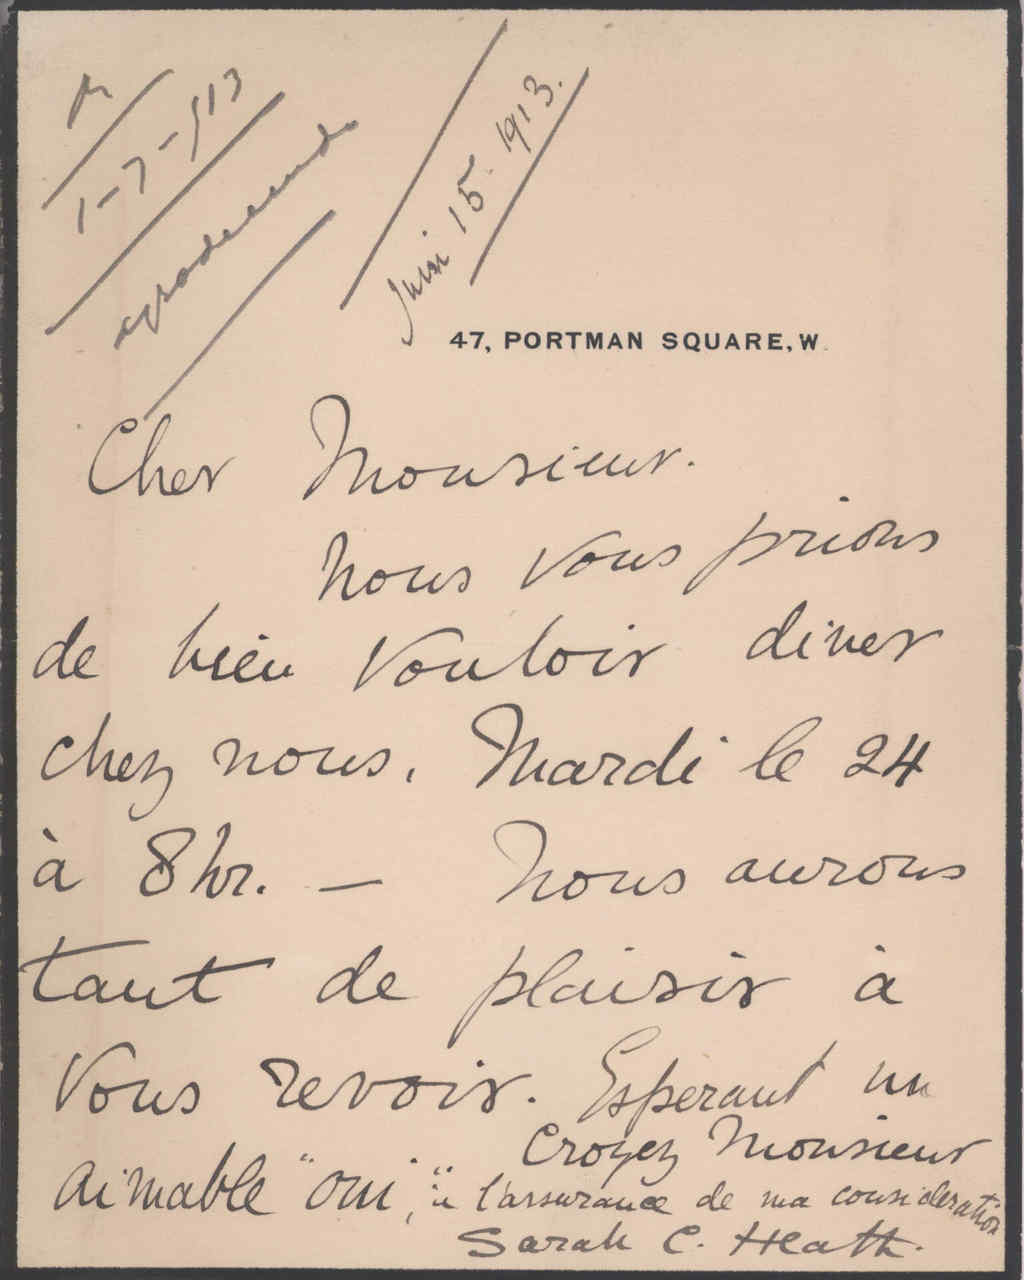 R
1-7-913
agradeciendo
Juin 15. 1913.
47, PORTMAN SQUARE, W.
Cher Monsieur.
Nous vous prions
de bien vouloir diner
chez nous. Mardi le 24
à 8 hr. — Nous aurons
tant de plaisir à
vous revoir. Esperant un
aimable "oui",
Croyez Monsieur
à l'assurance de ma consideration
Sarah C. Heath.